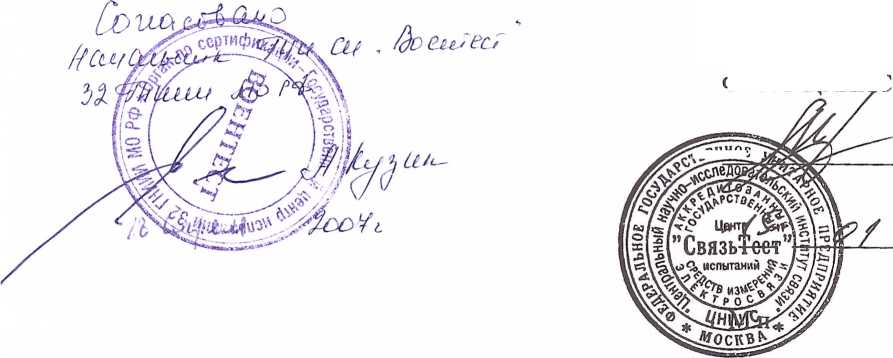 Согласовано
Начальник ГЦИ СИ "Воентест"
32 ГНИИ МО РФ
А. Кузин
2007г
32 ГНИИ МО РФ * Орган по сертификации - Государственный центр испытаний
ВОЕНТЕСТ
ФЕДЕРАЛЬНОЕ ГОСУДАРСТ УНИТАРНОЕ ПРЕДПРИЯТИЕ
"Центральный научно-исследовательский институт связи"
АККРЕДИТОВАННЫЙ
ГОСУДАРСТВЕННЫЙ
Центр
"СвязьТест"
испытаний
СРЕДСТВ ИЗМЕРЕНИЙ
ЭЛЕКТРОСВЯЗИ
ЦНИИС
* МОСКВА *